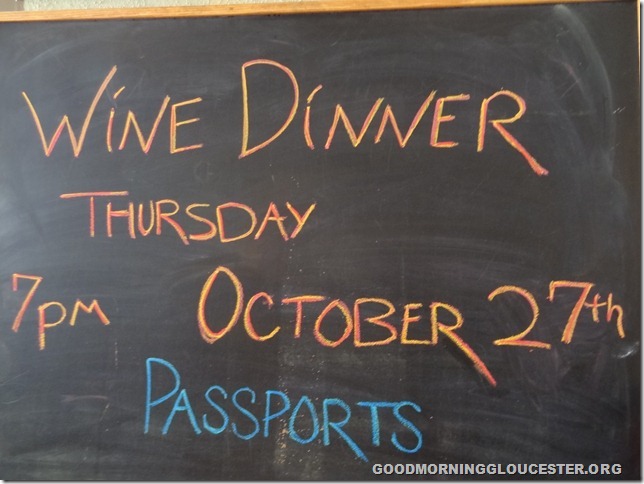 WiNE DiNNER
THURSDAY
7pm OCTOBER 27th
PASSPORTS
GOODMORNINGGLOUCESTER.ORG